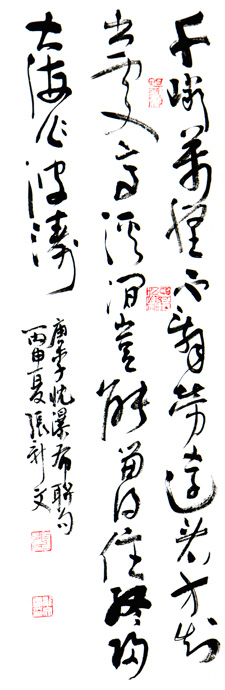 千巖萬壑不辭勞遠看方知
出處高溪澗豈能留得住終歸
大海作波濤
唐李忱瀑布聯句
丙申夏張新文